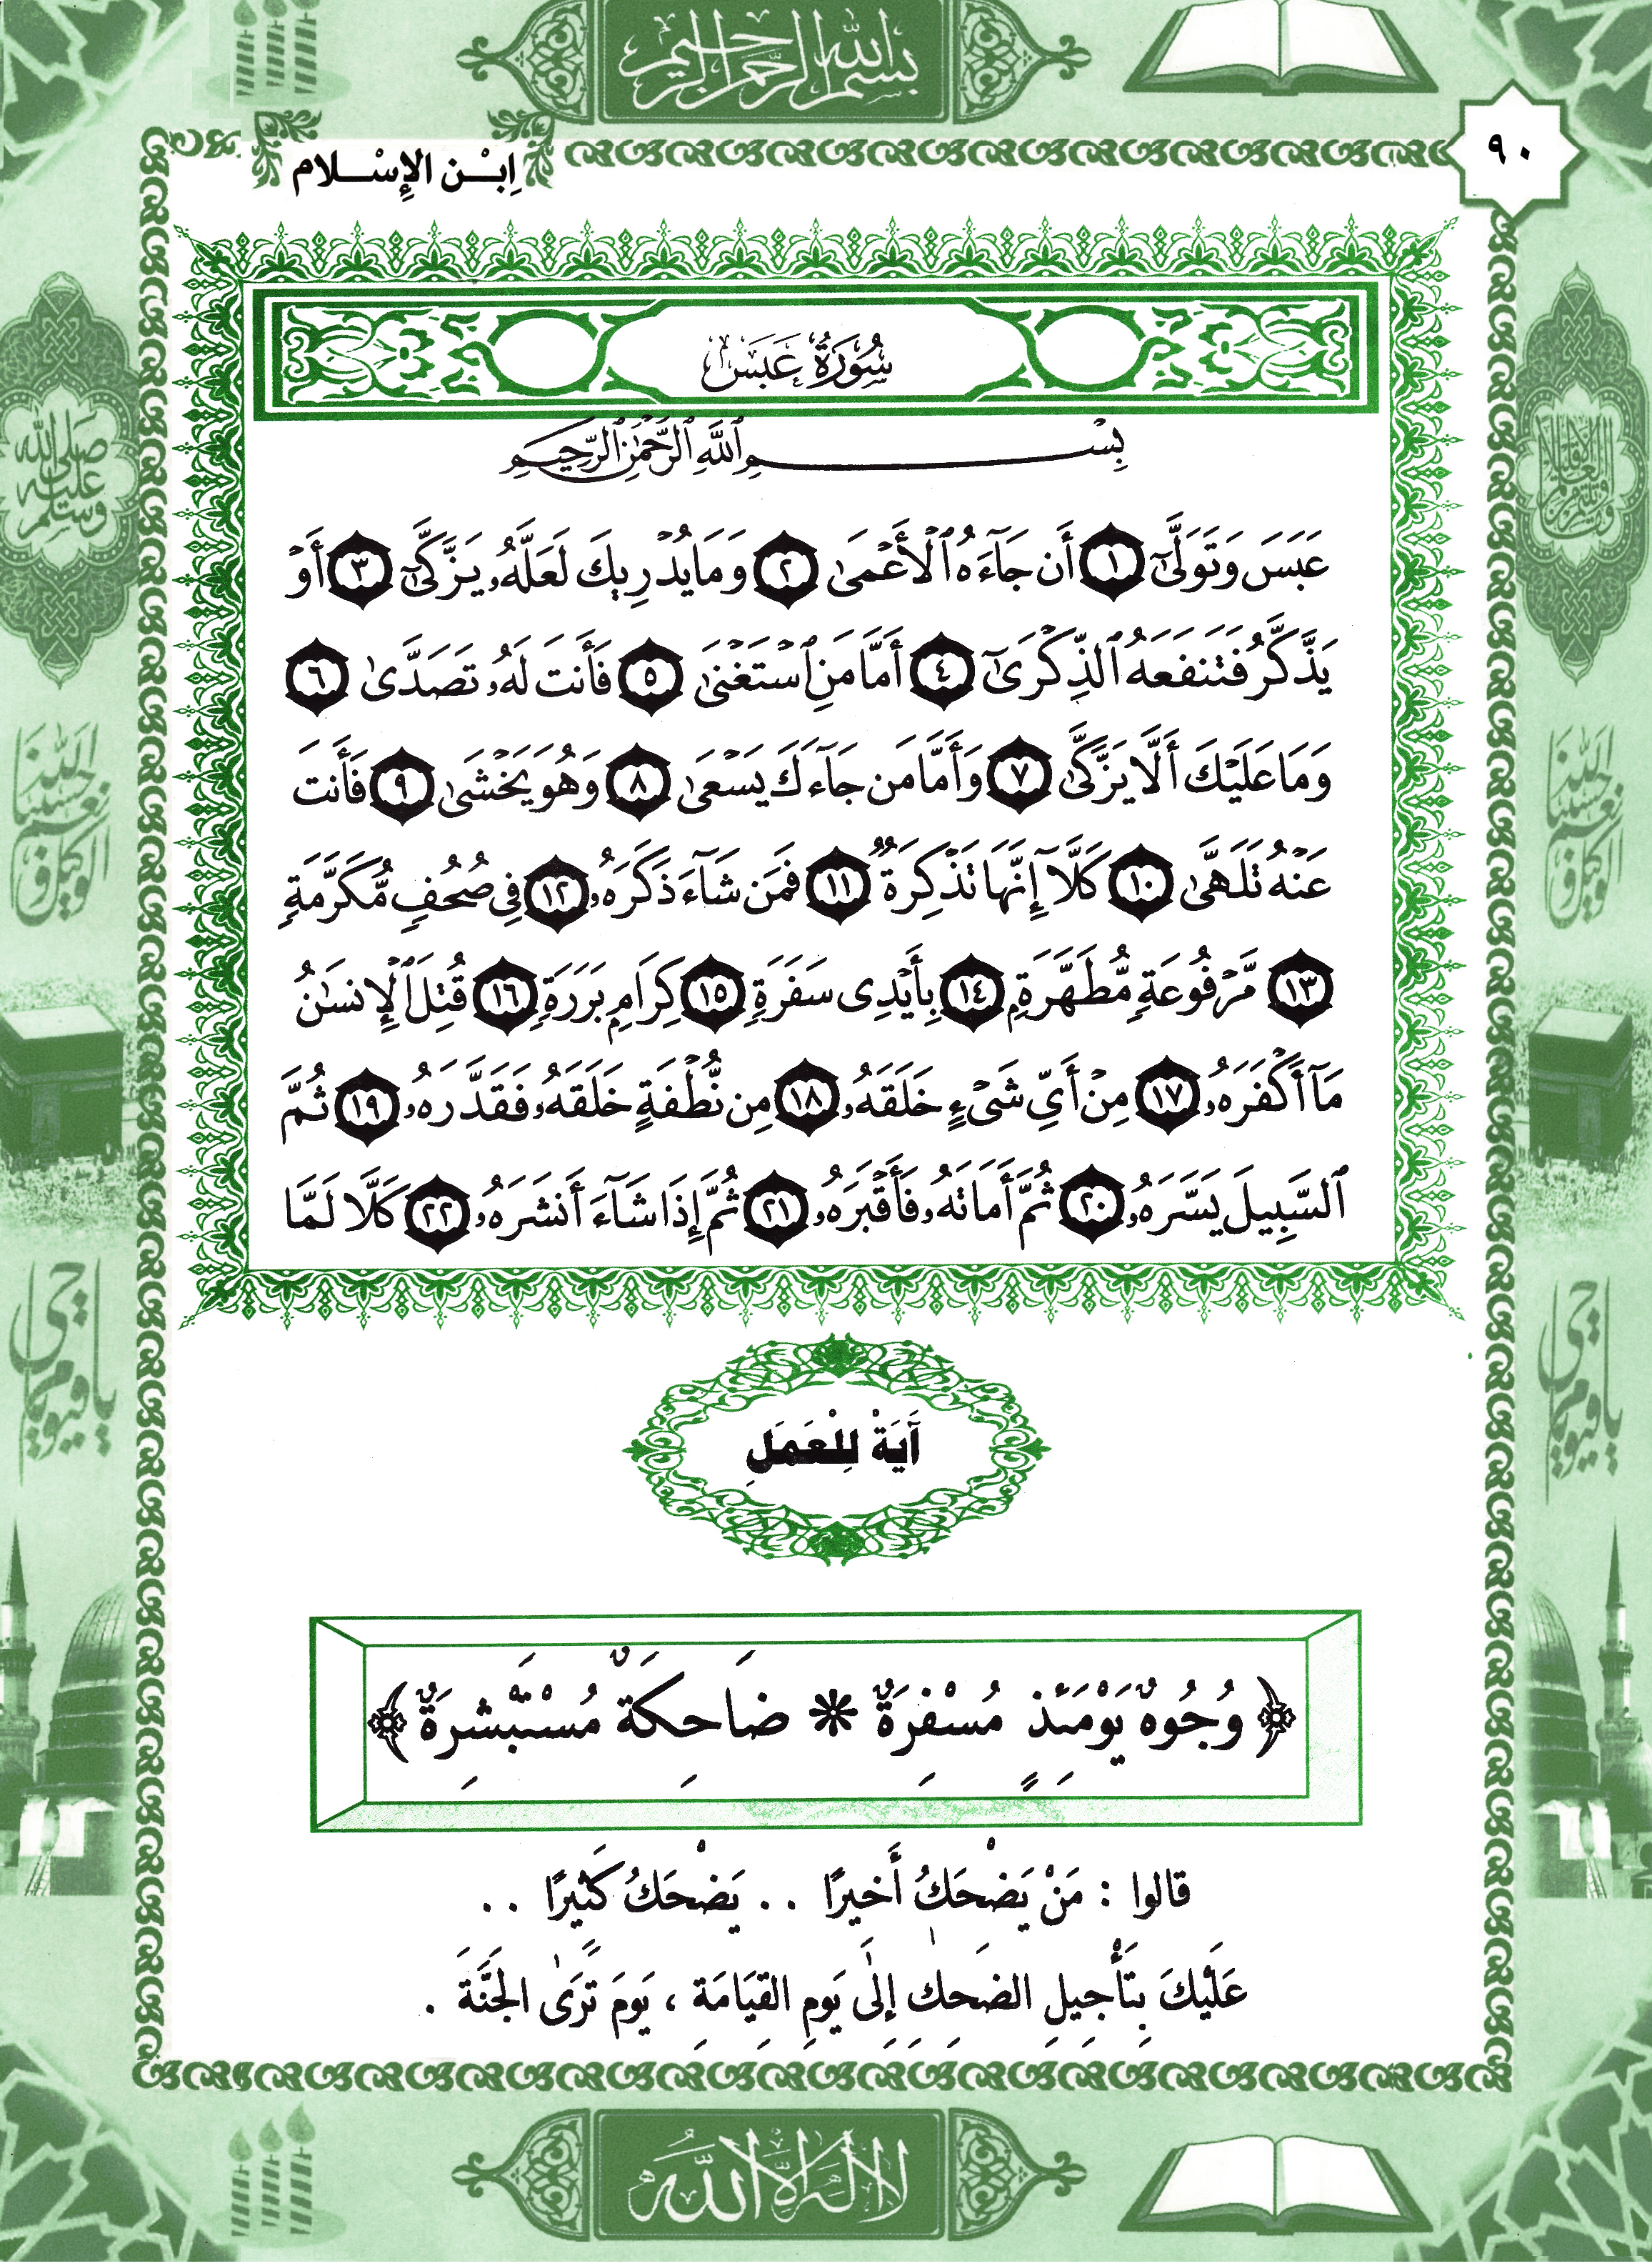 بسم الله الرحمن الرحيم
٩٠
اِبْـن الإِسْـلام
سُورَةُ عَبَسَ
بِسْمِ ٱللَّهِ ٱلرَّحْمَٰنِ ٱلرَّحِيمِ
عَبَسَ وَتَوَلَّىٰٓ ١ أَن جَآءَهُ ٱلْأَعْمَىٰ ٢ وَمَا يُدْرِيكَ لَعَلَّهُۥ يَزَّكَّىٰٓ ٣ أَوْ
يَذَّكَّرُ فَتَنفَعَهُ ٱلذِّكْرَىٰٓ ٤ أَمَّا مَنِ ٱسْتَغْنَىٰ ٥ فَأَنتَ لَهُۥ تَصَدَّىٰ ٦
وَمَا عَلَيْكَ أَلَّا يَزَّكَّىٰ ٧ وَأَمَّا مَن جَآءَكَ يَسْعَىٰ ٨ وَهُوَ يَخْشَىٰ ٩ فَأَنتَ
عَنْهُ تَلَهَّىٰ ١٠ كَلَّآ إِنَّهَا تَذْكِرَةٌ ١١ فَمَن شَآءَ ذَكَرَهُۥ ١٢ فِى صُحُفٍ مُّكَرَّمَةٍ
١٣ مَّرْفُوعَةٍ مُّطَهَّرَةٍۭ ١٤ بِأَيْدِى سَفَرَةٍ ١٥ كِرَامٍۭ بَرَرَةٍ ١٦ قُتِلَ ٱلْإِنسَٰنُ
مَآ أَكْفَرَهُۥ ١٧ مِنْ أَىِّ شَىْءٍ خَلَقَهُۥ ١٨ مِن نُّطْفَةٍ خَلَقَهُۥ فَقَدَّرَهُۥ ١٩ ثُمَّ
ٱلسَّبِيلَ يَسَّرَهُۥ ٢٠ ثُمَّ أَمَاتَهُۥ فَأَقْبَرَهُۥ ٢١ ثُمَّ إِذَا شَآءَ أَنشَرَهُۥ ٢٢ كَلَّا لَمَّا
آيَةْ لِلْعَمَلِ
﴿ وُجُوهٌ يَوْمَئِذٍ مُسْفِرَةٌ * ضَاحِكَةٌ مُسْتَبْشِرَةٌ ﴾
قالوا : مَنْ يَضْحَكُ أَخيرًا . . يَضْحَكُ كَثيرًا . .
عَلَيْكَ بِتَأْجِيلِ الضَحِكِ إِلَى يَومِ القِيَامَةِ ، يَومَ تَرَى الجَنَّةَ .
لا إله إلا الله
صلى الله عليه وسلم
حسبنا الله ونعم الوكيل
يا حي يا قيوم
حسبنا الله ونعم الوكيل
يا حي يا قيوم